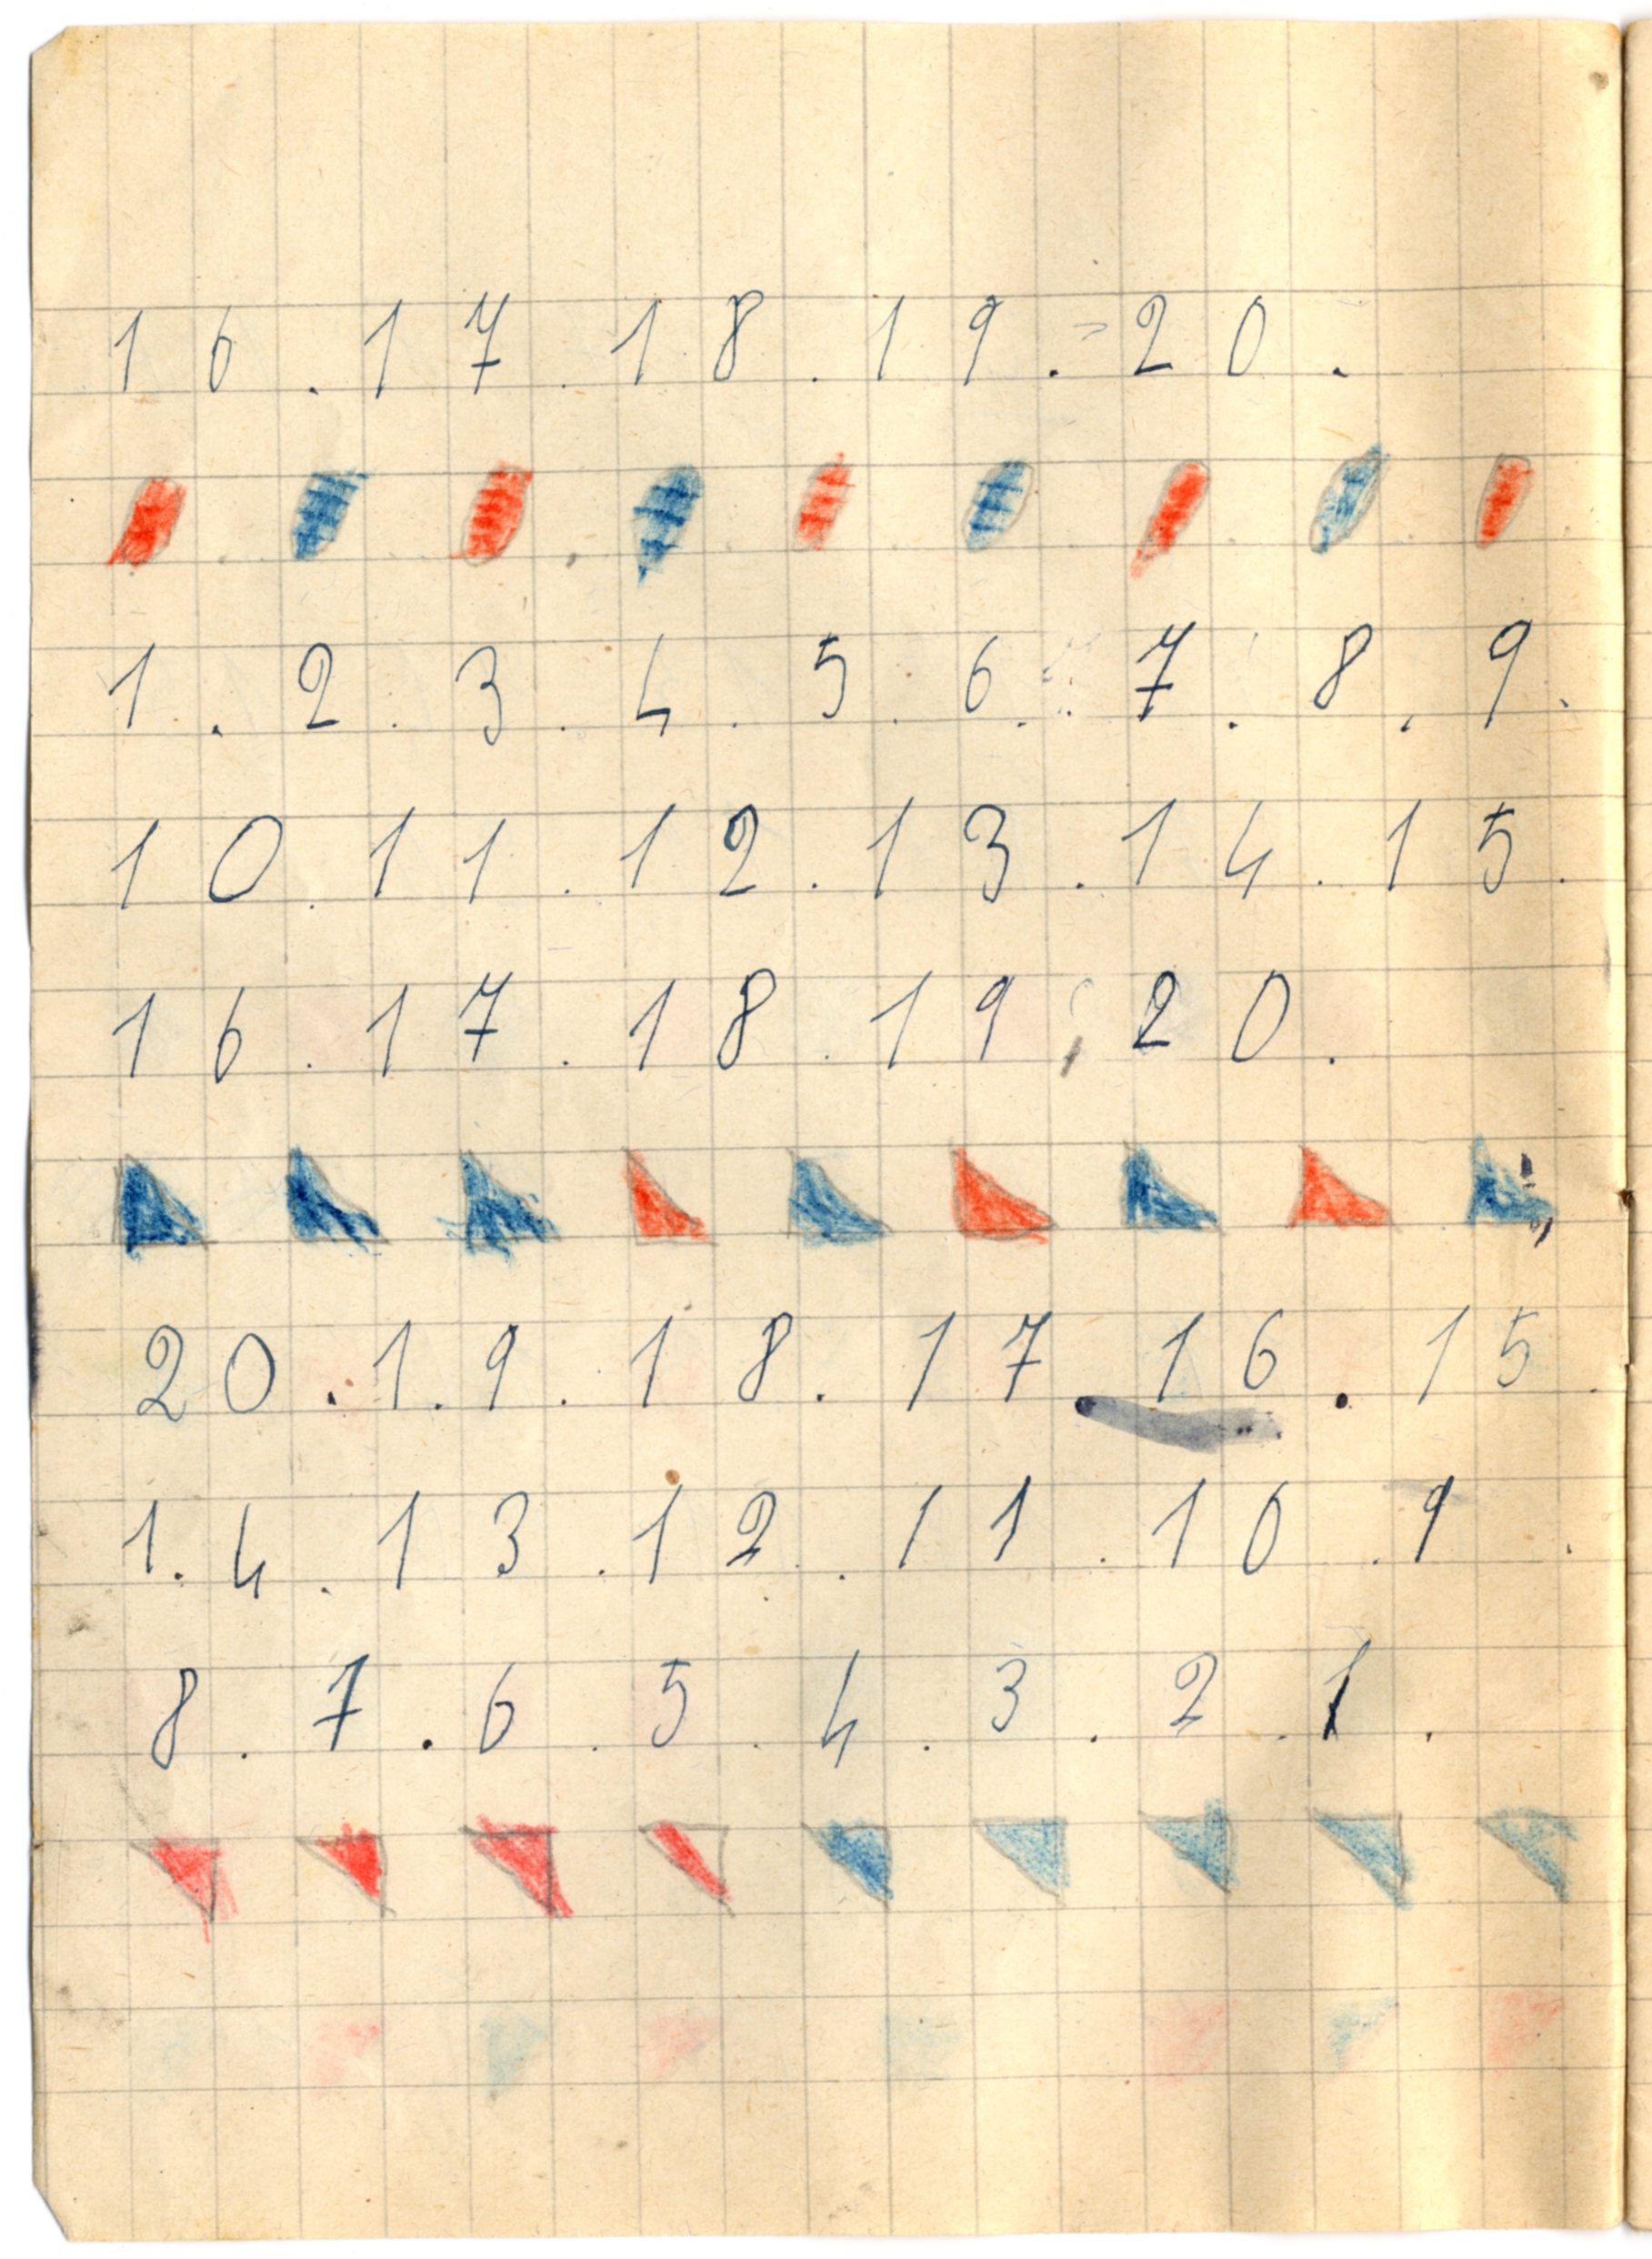 16.17.18.19.20.
1.2.3.4.5.6.7.8.9.
10.11.12.13.14.15.
16.17.18.19,20.
20.1.9.18.17.16.15.
1.4.13.12.11.10.9.
8.7.6.5.4.3.2.1.